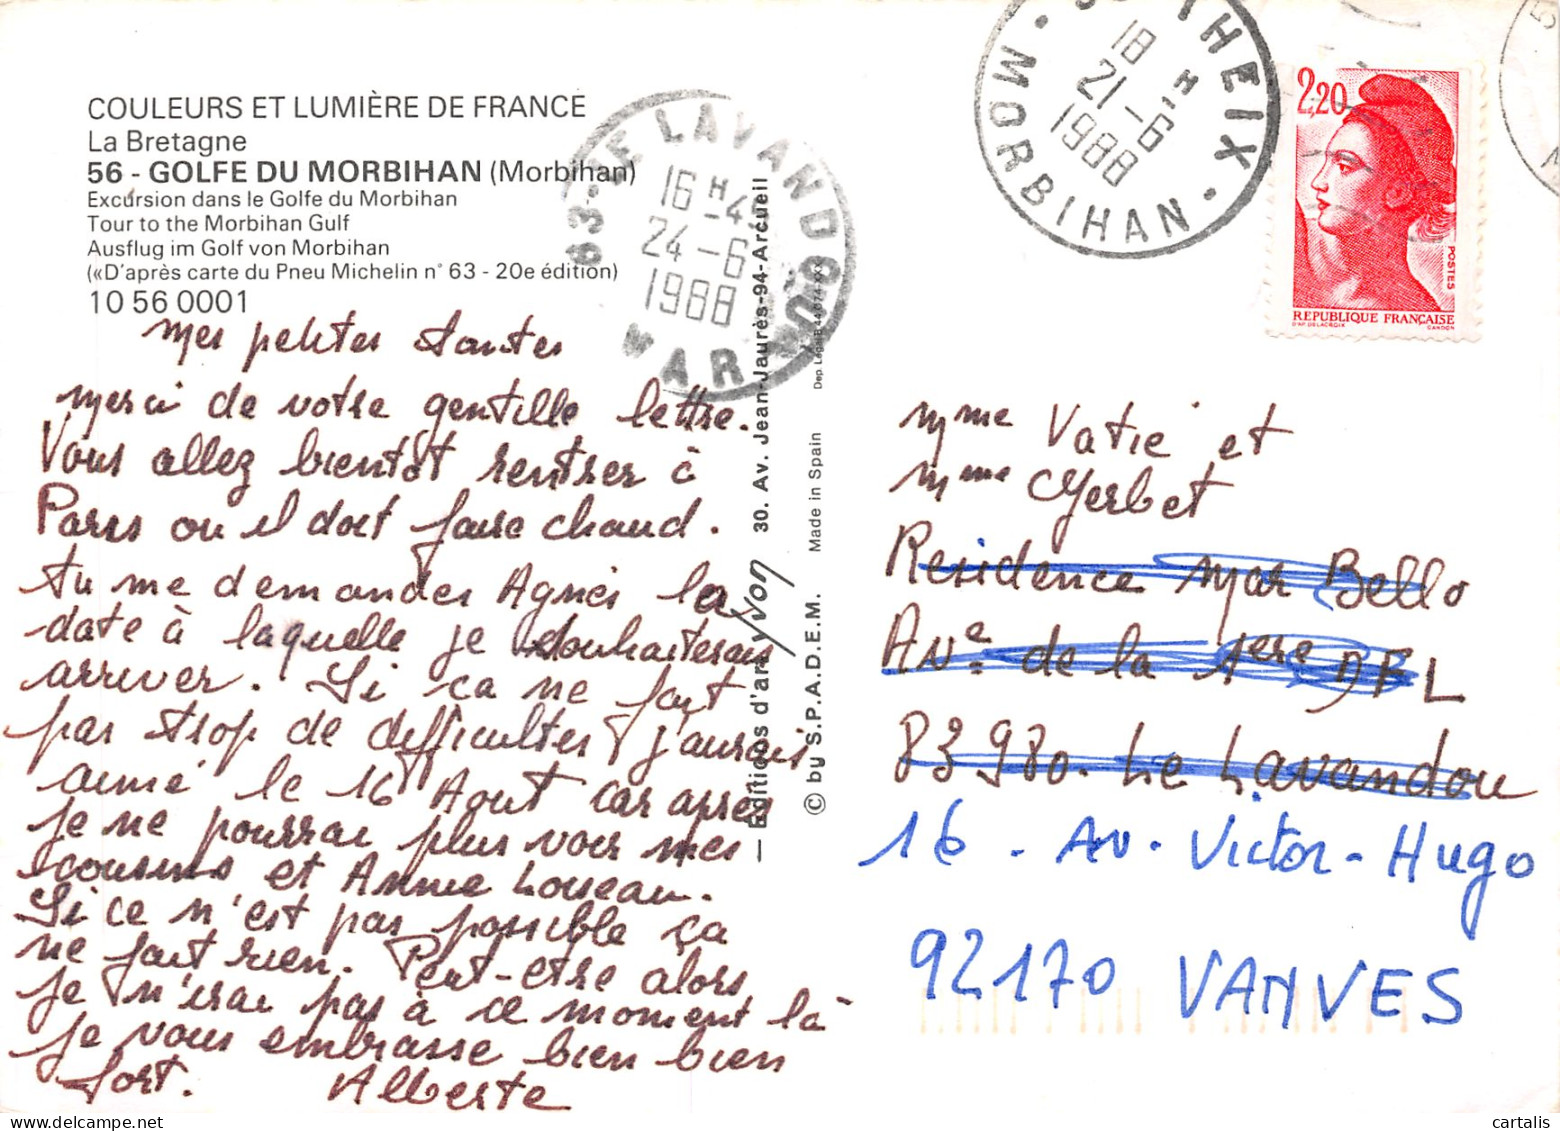 COULEURS ET LUMIÈRE DE FRANCE
La Bretagne
56 - GOLFE DU MORBIHAN (Morbihan)
Excursion dans le Golfe du Morbihan
Tour to the Morbihan Gulf
Ausflug im Golf von Morbihan
(«D'après carte du Pneu Michelin n° 63 - 20e édition)
10 56 0001
mes petites tantes
merci de votre gentille lettre.
Vous allez bientôt rentrer à
Paris ou il doit faire chaud.
tu me demandes Agnès la
date à laquelle je souhaiterais
arriver. Si ça ne fait
pas trop de difficultés j'aurais
aimé le 16 Aout car après
je ne pourrai plus voir mes
cousins et Annie Loiseau.
Si ce n'est pas possible ça
ne fait rien. Peut-etre alors
je n'irai pas à ce moment là
je vous embrasse bien bien
fort. Alberte
83-LE LAVANDOU
16 H-4
24-6
1988
VAR
— Editions d'art yvon 30. Av. Jean-Jaurès-94-Arcueil
© by S.P.A.D.E.M. Made in Spain
THEIX
18 H
21-6
1988
MORBIHAN
2,20
POSTES
REPUBLIQUE FRANÇAISE
D'AP. DELACROIX GANDON
Mme Vatie et
Mme Gerbet
Residence Mar Bello
Ave de la 1ere DFL
83980. Le Lavandou
16 - Av. Victor-Hugo
92170 VANVES
cartalis